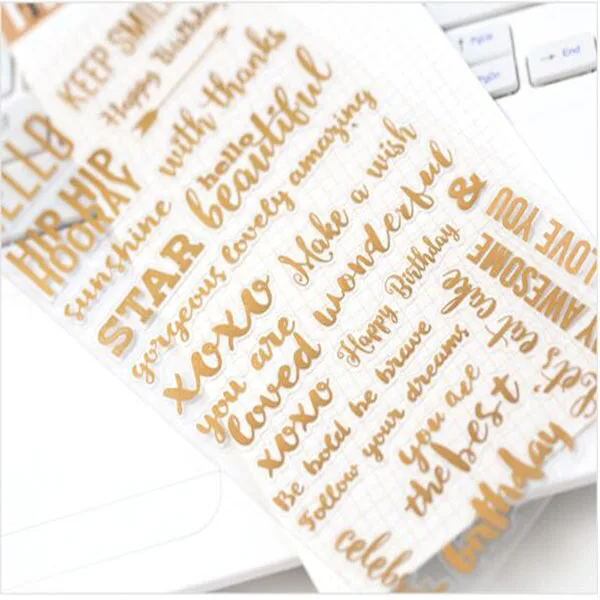 KEEP SMILI
Happy Birthday
HELLO
with thanks
HIP HIP
HOORAY
hello
beautiful
sunshine
STAR
gorgeous lovely amazing
Make a wish
xoxo
wonderful
you are
loved
Happy Birthday
xoxo
Be bold be brave
Follow your dreams
you are
the best
Let's eat cake
AWESOME
LOVE YOU &
birthday
PgUp
PgDn
End